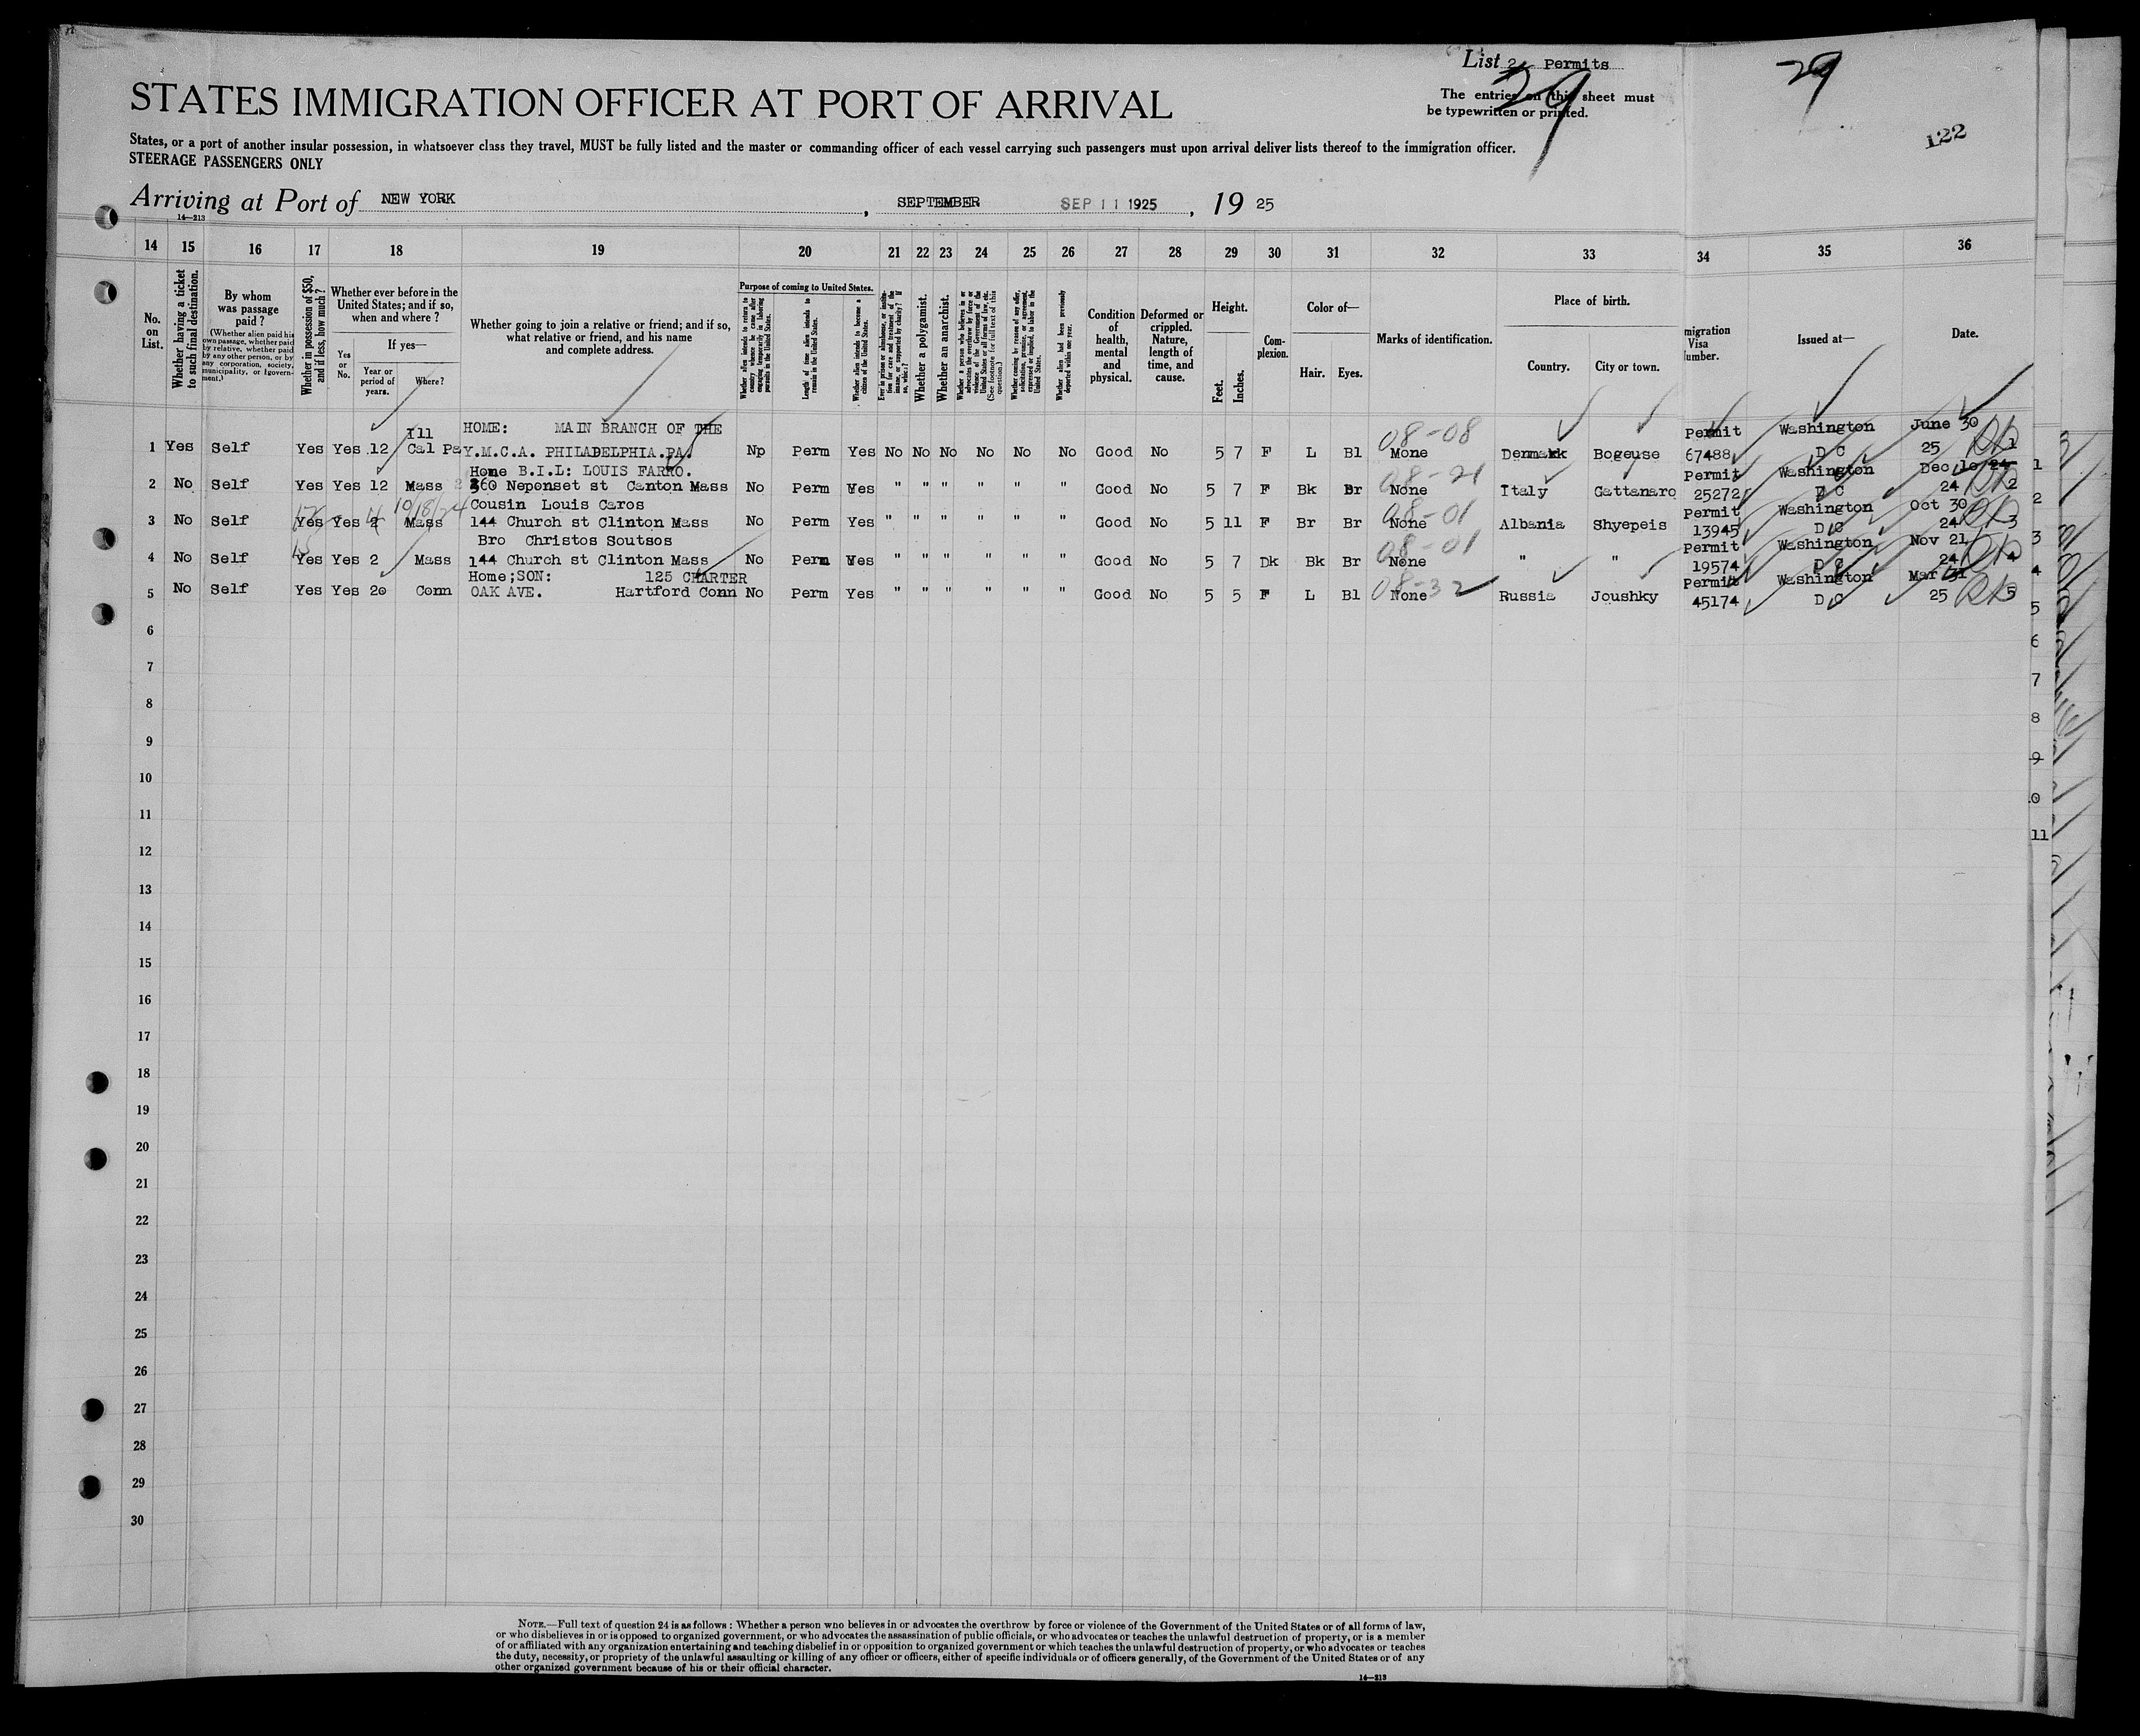 List 2 Permits
29
29
The entries on this sheet must
be typewritten or printed.
122
STATES IMMIGRATION OFFICER AT PORT OF ARRIVAL
States, or a port of another insular possession, in whatsoever class they travel, MUST be fully listed and the master or commanding officer of each vessel carrying such passengers must upon arrival deliver lists thereof to the immigration officer.
STEERAGE PASSENGERS ONLY
Arriving at Port of NEW YORK, SEPTEMBER SEP 11 1925, 1925
14—213
14 15 16 17 18 19 20 21 22 23 24 25 26 27 28 29 30 31 32 33 34 35 36
No. on List.
Whether having a ticket to such final destination.
By whom was passage paid?
(Whether alien paid his own passage, whether paid by relative, whether paid by any other person, or by any corporation, society, municipality, or government.)
Whether in possession of $50, and if less, how much?
Whether ever before in the United States; and if so, when and where?
Yes or No.
If yes—
Year or period of years.
Where?
Whether going to join a relative or friend; and if so, what relative or friend, and his name and complete address.
Purpose of coming to United States.
Whether alien intends to return to country whence he came after engaging temporarily in laboring pursuits in the United States.
Length of time alien intends to remain in the United States.
Whether alien intends to become a citizen of the United States.
Ever in prison or almshouse, or institution for care and treatment of the insane, or supported by charity? If so, which?
Whether a polygamist.
Whether an anarchist.
Whether a person who believes in or advocates the overthrow by force or violence of the Government of the United States or all forms of law, etc. (See footnote for full text of this question.)
Whether coming by reason of any offer, solicitation, promise, or agreement, expressed or implied, to labor in the United States.
Whether alien had been previously deported within one year.
Condition of health, mental and physical.
Deformed or crippled. Nature, length of time, and cause.
Height.
Feet. Inches.
Complexion.
Color of—
Hair. Eyes.
Marks of identification.
Place of birth.
Country. City or town.
migration Visa umber.
Issued at—
Date.
Ill HOME: MAIN BRANCH OF THE 08-08 Permit Washington June 30
1 Yes Self Yes Yes 12 Cal Pa Y.M.C.A. PHILADELPHIA.PA. Np Perm Yes No No No No No No Good No 5 7 F L Bl Mone Denmark Bogeuse 67488 D C 25 1
Home B.I.L: LOUIS FARRO. 08-21 Permit Washington Dec 10 24
2 No Self Yes Yes 12 Mass 360 Neponset st Canton Mass No Perm Yes " " " " " " Good No 5 7 F Bk Br None Italy Cattanaro 25272 D C 24 2
10/18/24 Cousin Louis Caros 08-01 Permit Washington Oct 30
3 No Self Yes Yes 2 Mass 144 Church st Clinton Mass No Perm Yes " " " " " " Good No 5 11 F Br Br None Albania Shyepeis 13945 D C 24 3
Bro Christos Soutsos 08-01 Permit Washington Nov 21
4 No Self Yes Yes 2 Mass 144 Church st Clinton Mass No Perm Yes " " " " " " Good No 5 7 Dk Bk Br None " " 19574 D C 24 4
Home;SON: 125 CHARTER 08-32 Permit Washington Mar 31
5 No Self Yes Yes 20 Conn OAK AVE. Hartford Conn No Perm Yes " " " " " " Good No 5 5 F L Bl None Russia Joushky 45174 D C 25 5
6
7
8
9
10
11
12
13
14
15
16
17
18
19
20
21
22
23
24
25
26
27
28
29
30
1
2
3
4
5
6
7
8
9
10
11
NOTE.—Full text of question 24 is as follows: Whether a person who believes in or advocates the overthrow by force or violence of the Government of the United States or of all forms of law,
or who disbelieves in or is opposed to organized government, or who advocates the assassination of public officials, or who advocates or teaches the unlawful destruction of property, or is a member
of or affiliated with any organization entertaining and teaching disbelief in or opposition to organized government or which teaches the unlawful destruction of property, or who advocates or teaches
the duty, necessity, or propriety of the unlawful assaulting or killing of any officer or officers, either of specific individuals or of officers generally, of the Government of the United States or of any
other organized government because of his or their official character.
14—213